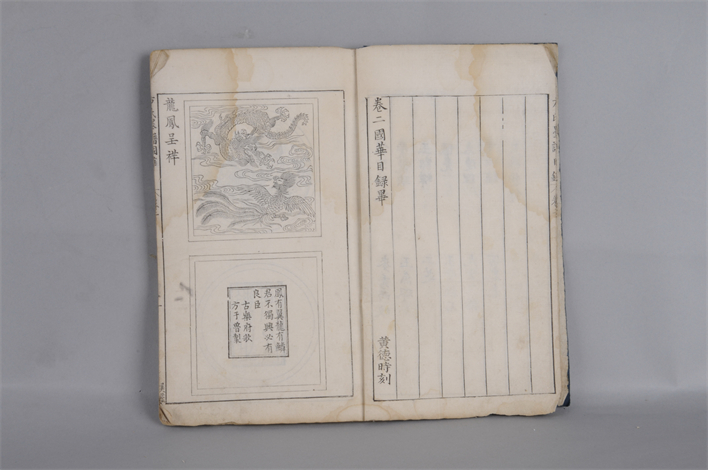 卷二國華目錄畢
黃德時刻
龍鳳呈祥
鳳有翼龍有鱗
君不獨興必有
良臣
古樂府歌
方于魯製